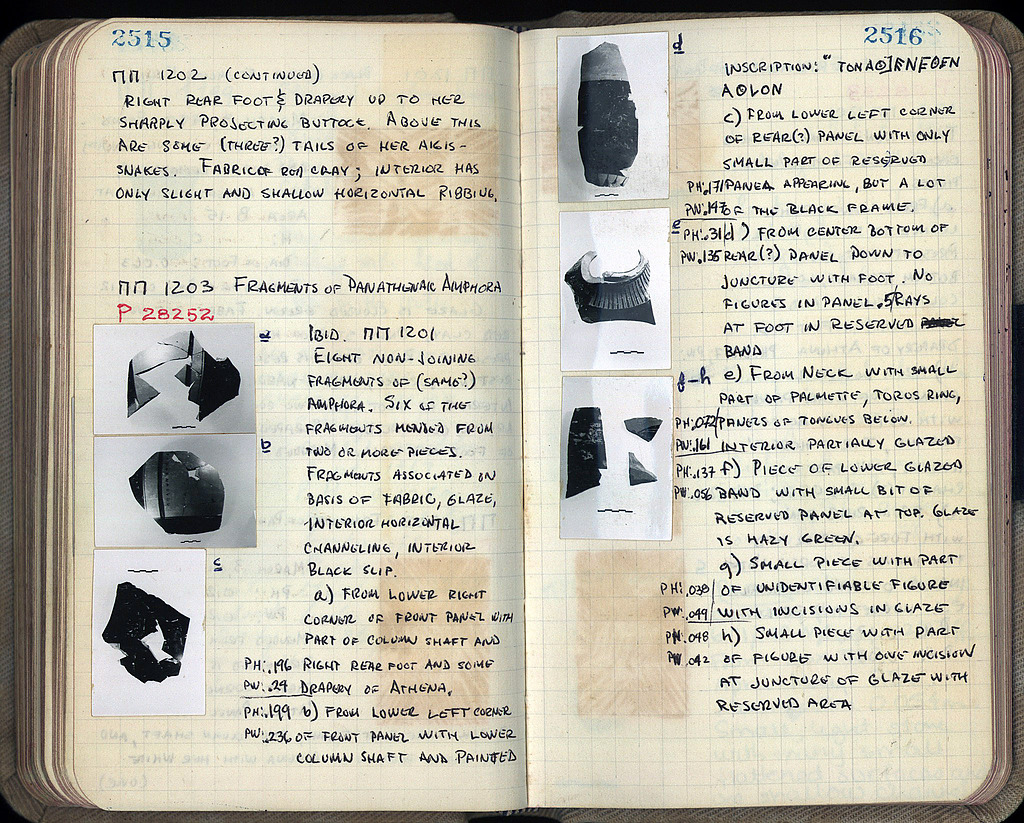 2515
ΠΠ 1202 (CONTINUED)
RIGHT REAR FOOT & DRAPERY UP TO HER
SHARPLY PROJECTING BUTTOCK. ABOVE THIS
ARE SOME (THREE?) TAILS OF HER AIGIS-
SNAKES. FABRIC OF RED CLAY; INTERIOR HAS
ONLY SLIGHT AND SHALLOW HORIZONTAL RIBBING.
ΠΠ 1203 FRAGMENTS OF PANATHENAIC AMPHORA
P 28252
a
IBID. ΠΠ 1201
EIGHT NON-JOINING
FRAGMENTS OF (SAME?)
AMPHORA. SIX OF THE
FRAGMENTS MENDED FROM
b
TWO OR MORE PIECES.
FRAGMENTS ASSOCIATED ON
BASIS OF FABRIC, GLAZE,
INTERIOR HORIZONTAL
CHANNELING, INTERIOR
c
BLACK SLIP.
a) FROM LOWER RIGHT
CORNER OF FRONT PANEL WITH
PART OF COLUMN SHAFT AND
PH:.196 RIGHT REAR FOOT AND SOME
PW:.29 DRAPERY OF ATHENA.
PH:.199 b) FROM LOWER LEFT CORNER
PW:.236 OF FRONT PANEL WITH LOWER
COLUMN SHAFT AND PAINTED
2516
d
INSCRIPTION: "TONAΘ]ENEΘEN
AΘLON
c) FROM LOWER LEFT CORNER
OF REAR(?) PANEL WITH ONLY
SMALL PART OF RESERVED
PH:.171 PANEL APPEARING, BUT A LOT
PW:.147 OF THE BLACK FRAME.
e
PH:.31 d) FROM CENTER BOTTOM OF
PW:.135 REAR(?) PANEL DOWN TO
JUNCTURE WITH FOOT. NO
FIGURES IN PANEL. 5 RAYS
AT FOOT IN RESERVED
BAND
f-h
e) FROM NECK WITH SMALL
PART OF PALMETTE, TORUS RING,
PH:.072 PANELS OF TONGUES BELOW.
PW:.161 INTERIOR PARTIALLY GLAZED
PH:.137 f) PIECE OF LOWER GLAZED
PW:.056 BAND WITH SMALL BIT OF
RESERVED PANEL AT TOP. GLAZE
IS HAZY GREEN.
g) SMALL PIECE WITH PART
PH:.038 OF UNIDENTIFIABLE FIGURE
PW:.049 WITH INCISIONS IN GLAZE
PH:.048 h) SMALL PIECE WITH PART
PW:.042 OF FIGURE WITH ONE INCISION
AT JUNCTURE OF GLAZE WITH
RESERVED AREA